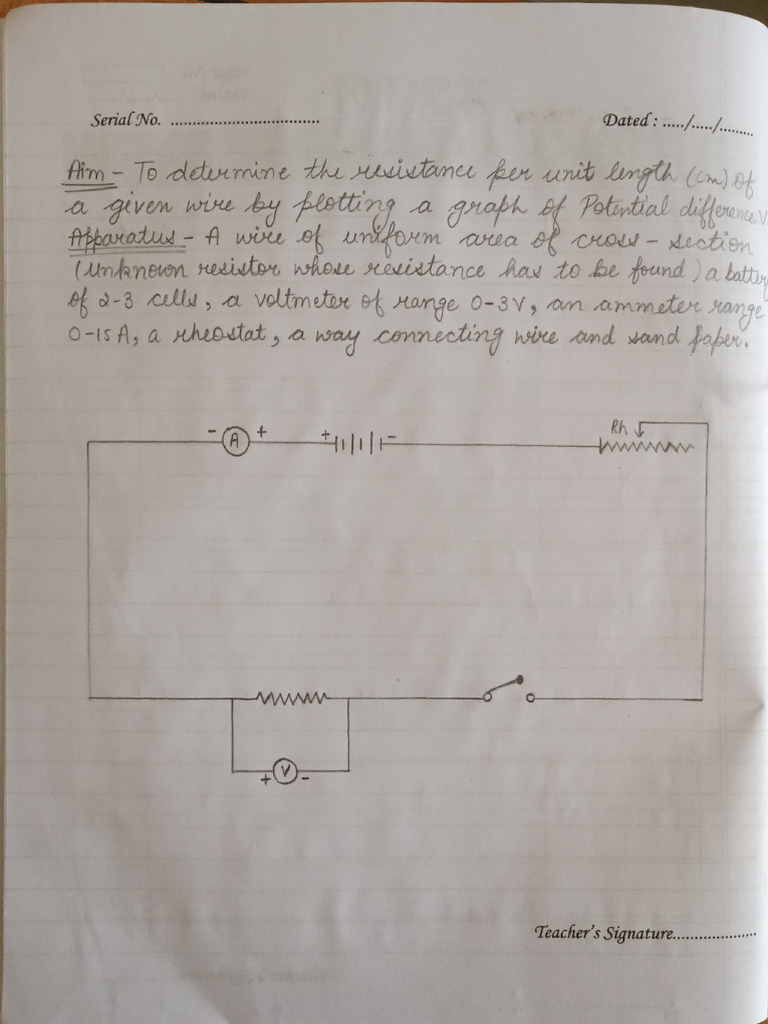 Serial No. ................................
Dated : ...../...../........
Aim - To determine the resistance per unit length (cm) of
a given wire by plotting a graph of Potential difference V
Apparatus - A wire of uniform area of cross - section
(Unknown resistor whose resistance has to be found) a battery
of 2-3 cells, a voltmeter of range 0-3V, an ammeter range
0-15 A, a rheostat, a way connecting wire and sand paper.
- A + + - Rh
+ V -
Teacher's Signature...................